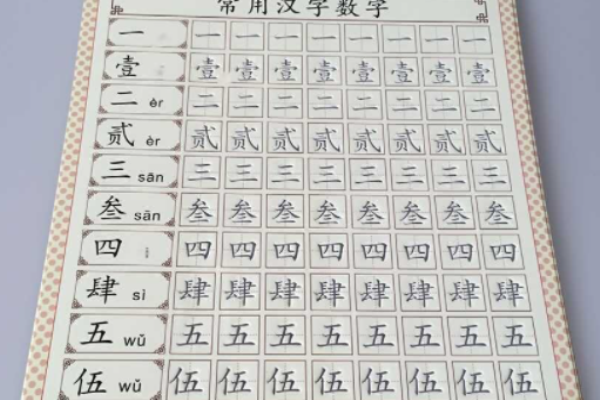 常用汉字数字
一 一 一 一 一 一 一 一 一
壹 壹 壹 壹 壹 壹 壹 壹 壹
二 èr 二 二 二 二 二 二 二 二
贰 èr 贰 贰 贰 贰 贰 贰 贰 贰
三 sān 三 三 三 三 三 三 三 三
叁 sān 叁 叁 叁 叁 叁 叁 叁 叁
四 四 四 四 四 四 四 四 四
肆 sì 肆 肆 肆 肆 肆 肆 肆 肆
五 wǔ 五 五 五 五 五 五 五 五
伍 wǔ 伍 伍 伍 伍 伍 伍 伍 伍